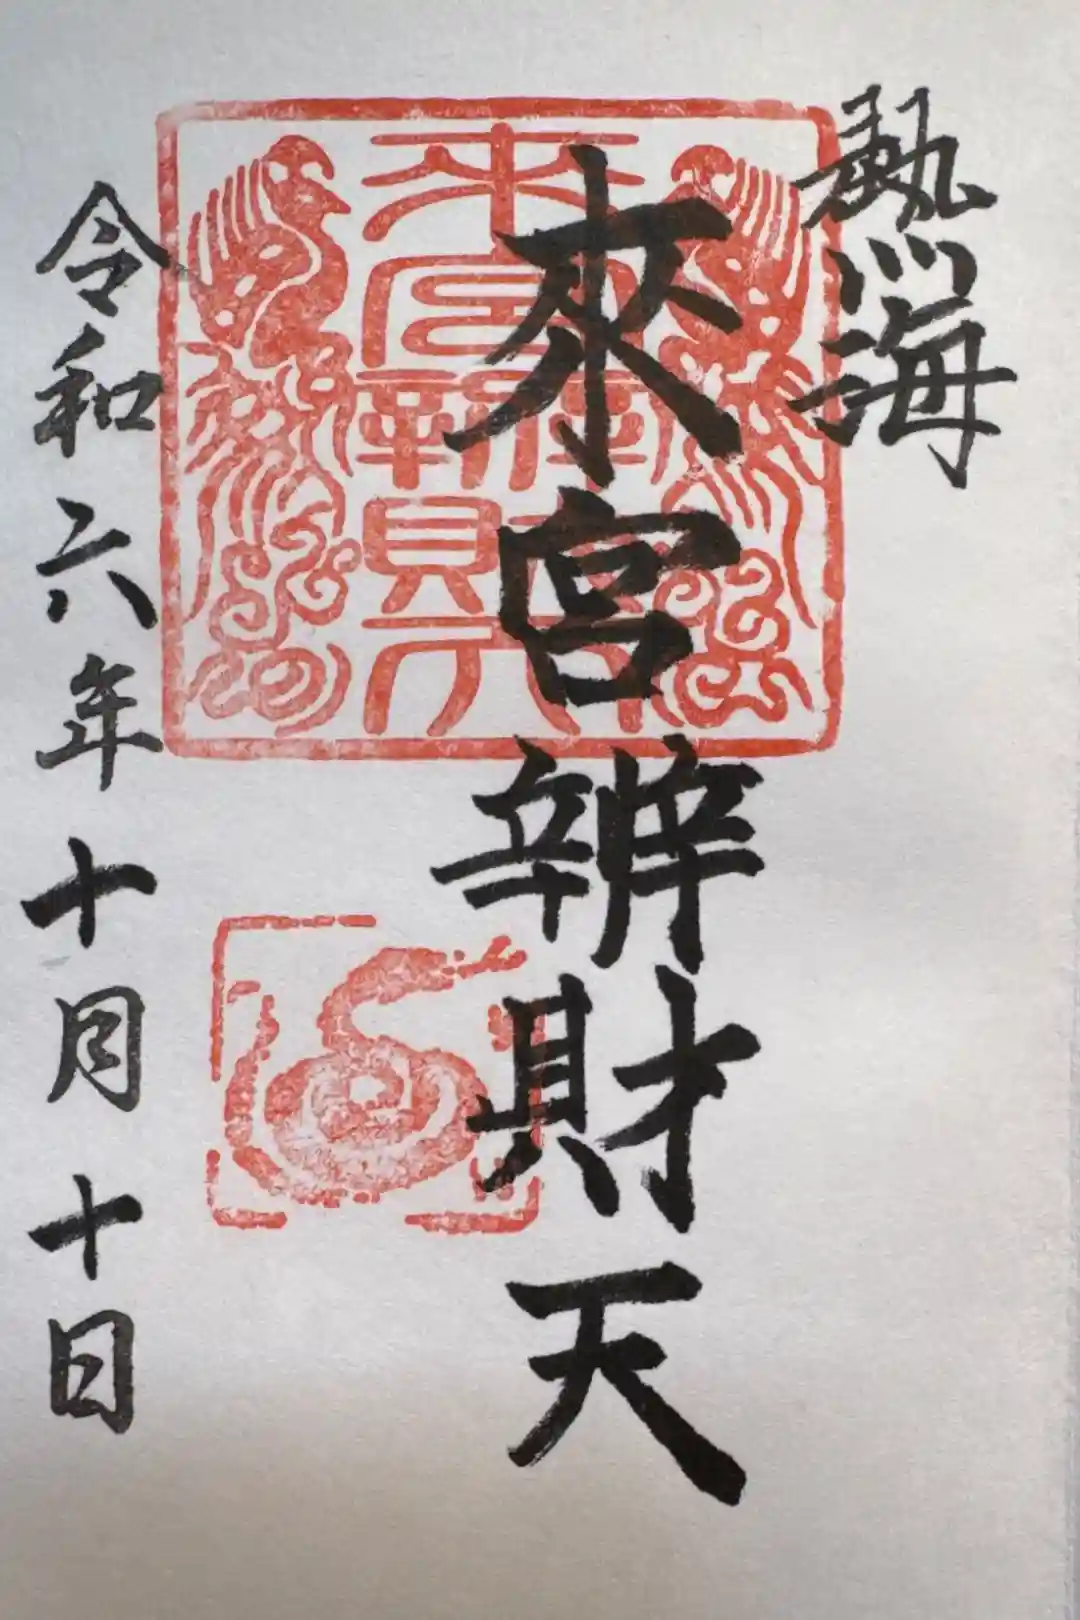 熱海
來宮辨財天
令和六年十月十日